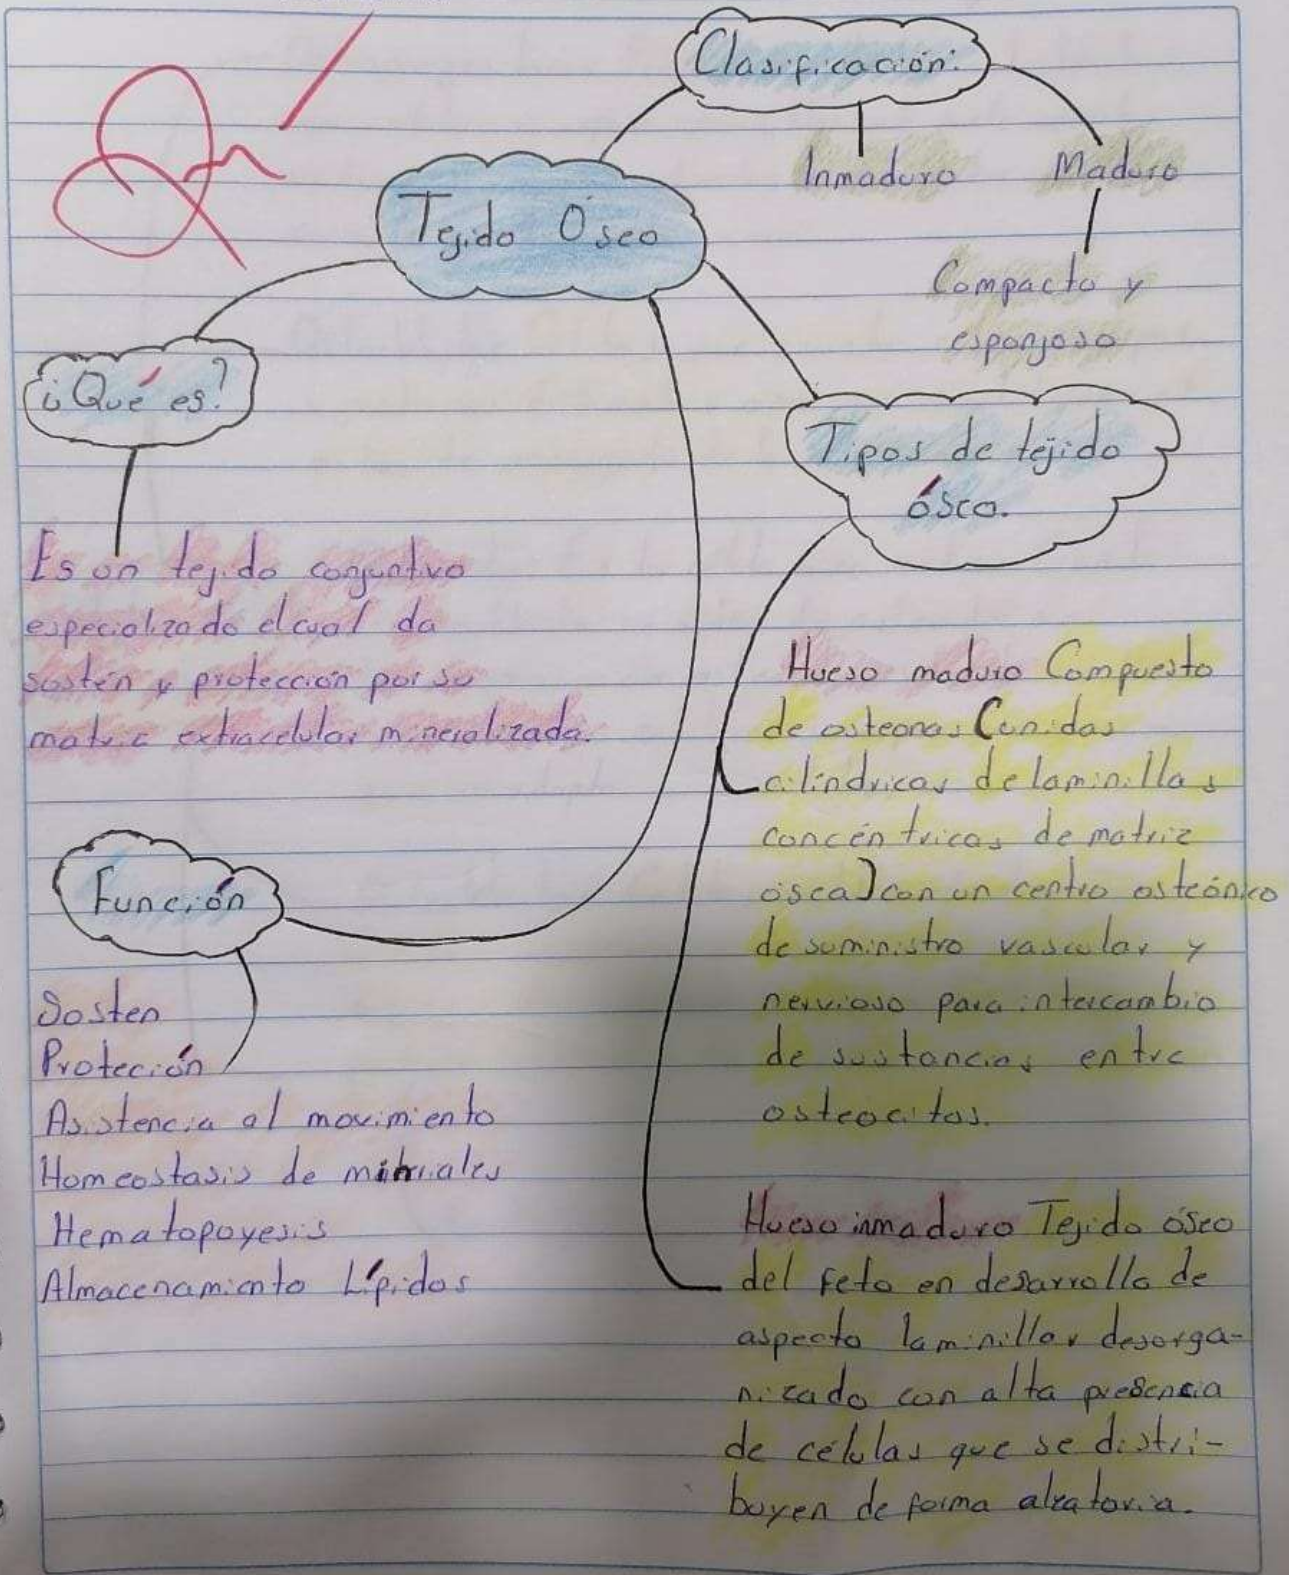 Clasificación:
Inmaduro
Maduro
Compacto y
esponjoso
Tejido Óseo
¿Qué es?
Es un tejido conjuntivo
especializado el cual da
sostén y protección por su
matriz extracelular mineralizada.
Tipos de tejido
óseo.
Hueso maduro Compuesto
de osteonas (unidas
cilíndricas de laminillas
concéntricas de matriz
ósea) con un centro osteónico
de suministro vascular y
nervioso para intercambio
de sustancias entre
osteocitos.
Hueso inmaduro Tejido óseo
del feto en desarrollo de
aspecto laminillar desorga-
nizado con alta presencia
de células que se distri-
buyen de forma aleatoria.
Función
Sosten
Proteción
Asistencia al movimiento
Homeostasis de
Hematopoyesis
Almacenamiento Lípidos